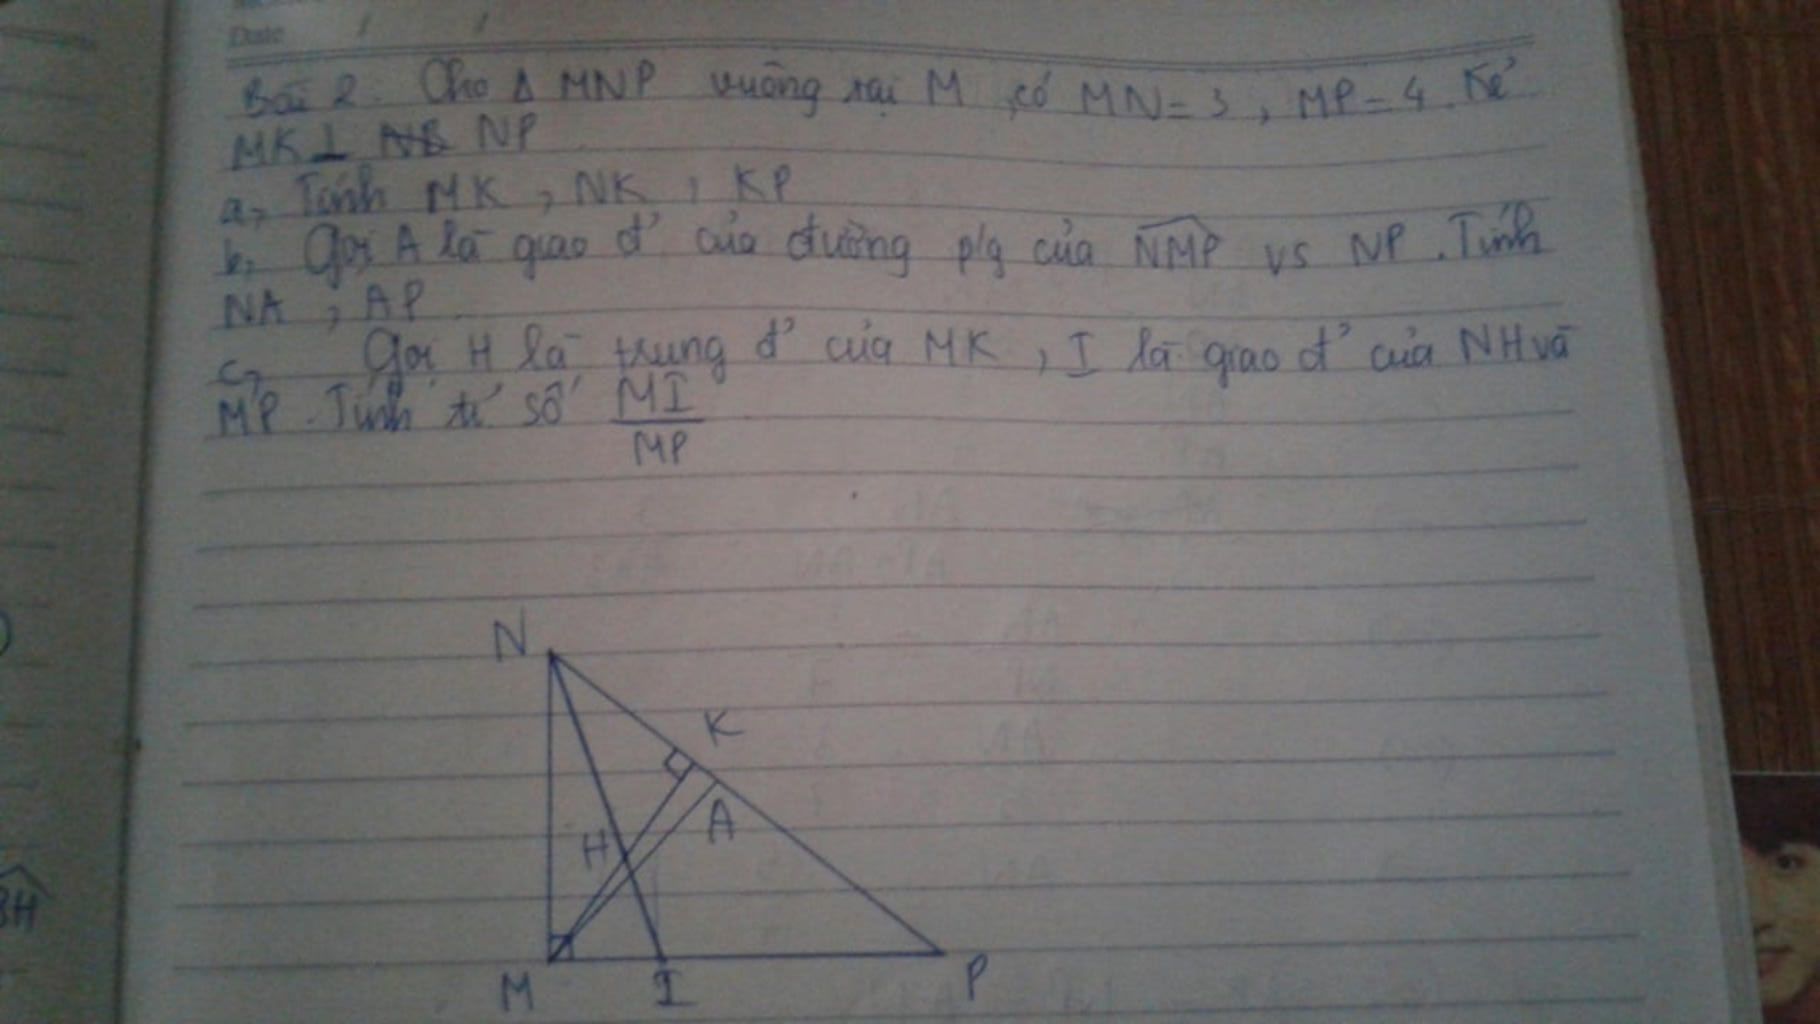 Date
Bài 2. Cho Δ MNP vuông tại M, có MN = 3, MP = 4. Kẻ
MK ⊥ NP
a, Tính MK, NK, KP
b, Gọi A là giao đ' của đường p/g của NMP vs NP. Tính
NA, AP.
c, Gọi H là trung đ' của MK, I là giao đ' của NH và
MP. Tính tỉ số MI
MP
N
K
A
H
BH
M I P